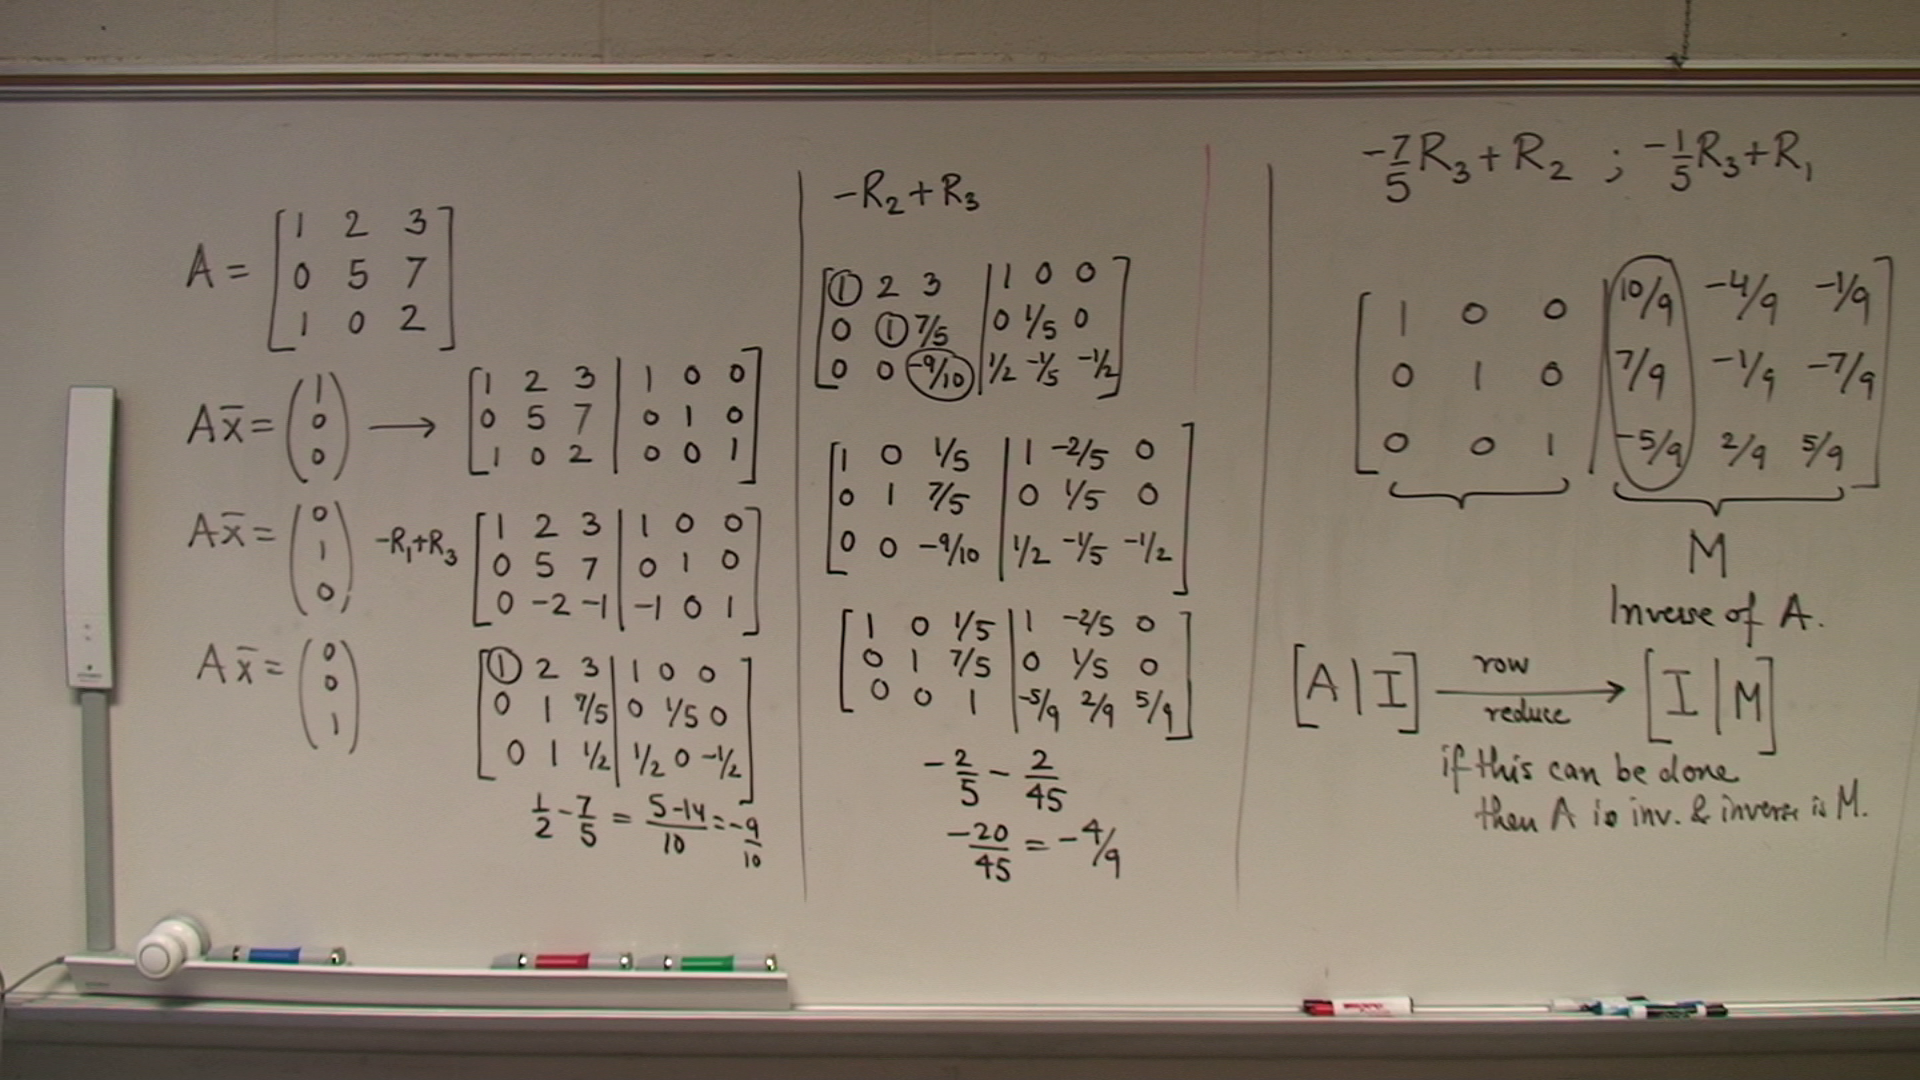 A = [1 2 3
0 5 7
1 0 2]
Ax̄ = (1
0
0) → [1 2 3 | 1 0 0
0 5 7 | 0 1 0
1 0 2 | 0 0 1]
Ax̄ = (0
1
0)
-R₁+R₃ [1 2 3 | 1 0 0
0 5 7 | 0 1 0
0 -2 -1 | -1 0 1]
Ax̄ = (0
0
1)
[1 2 3 | 1 0 0
0 1 7/5 | 0 1/5 0
0 1 1/2 | 1/2 0 -1/2]
1/2 - 7/5 = (5-14)/10 = -9/10
-R₂+R₃
[1 2 3 | 1 0 0
0 1 7/5 | 0 1/5 0
0 0 -9/10 | 1/2 -1/5 -1/2]
[1 0 1/5 | 1 -2/5 0
0 1 7/5 | 0 1/5 0
0 0 -9/10 | 1/2 -1/5 -1/2]
[1 0 1/5 | 1 -2/5 0
0 1 7/5 | 0 1/5 0
0 0 1 | -5/9 2/9 5/9]
-2/5 - 2/45
-20/45 = -4/9
-7/5 R₃+R₂ ; -1/5 R₃+R₁
[1 0 0 | 10/9 -4/9 -1/9
0 1 0 | 7/9 -1/9 -7/9
0 0 1 | -5/9 2/9 5/9]
M
Inverse of A.
[A | I] row reduce → [I | M]
if this can be done
then A is inv. & inverse is M.